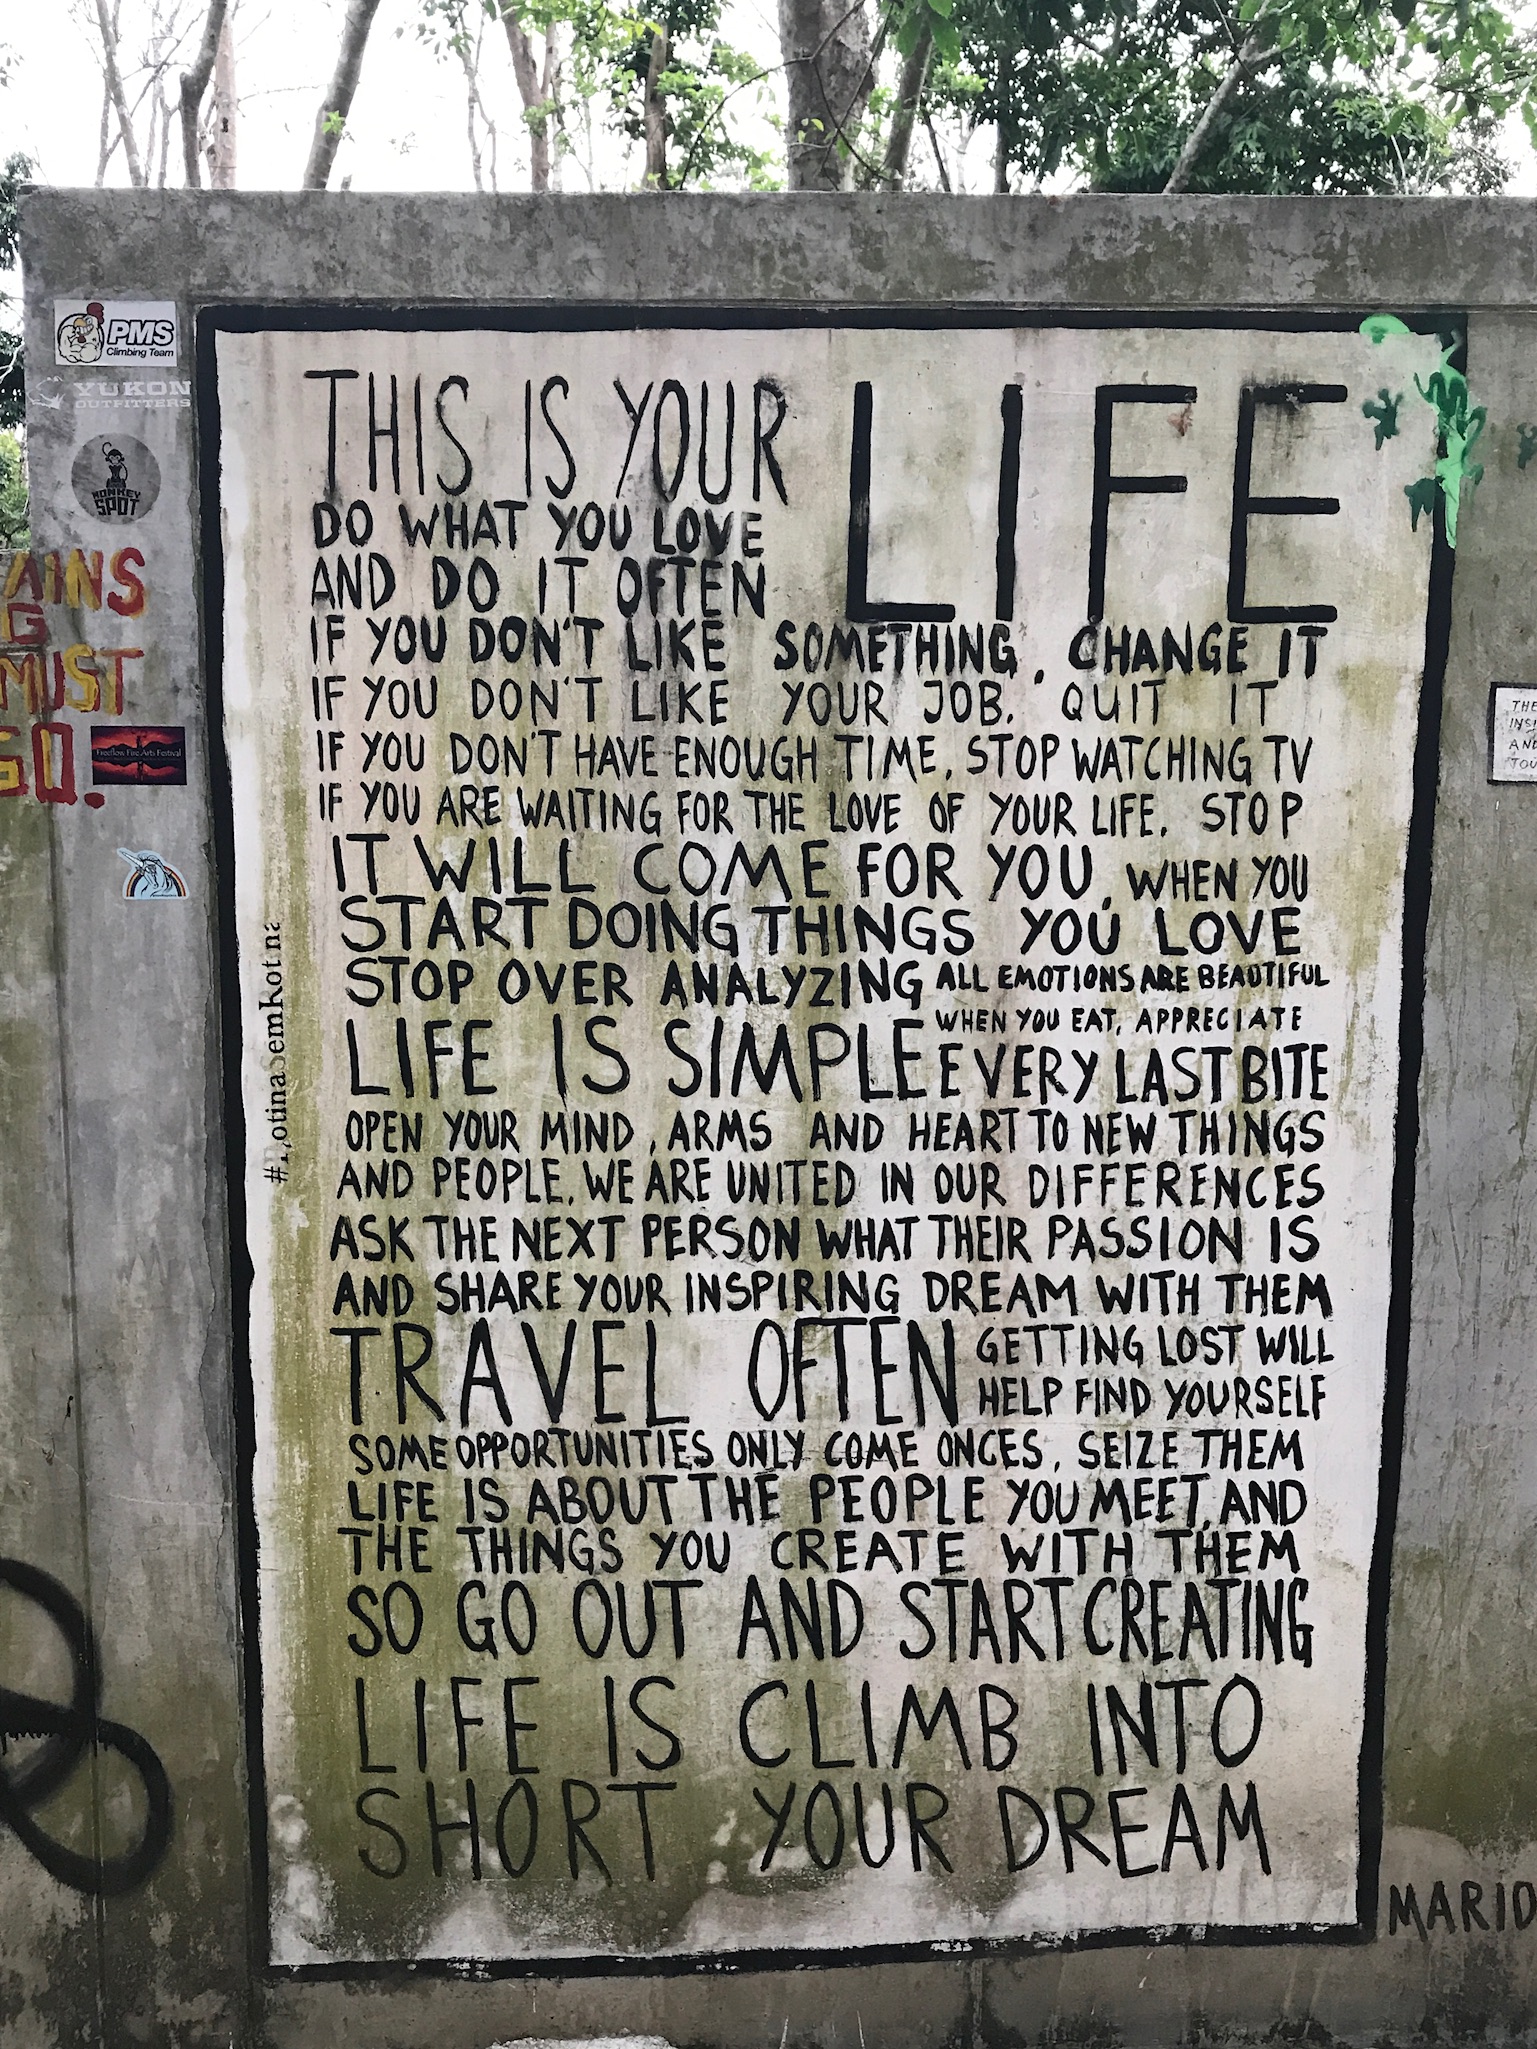 PMS
Climbing Team
YUKON
OUTFITTERS
MONKEY
SPOT
AINS
G
MUST
GO.
Freeflow Fire Arts Festival
THIS IS YOUR LIFE
DO WHAT YOU LOVE
AND DO IT OFTEN
IF YOU DON'T LIKE SOMETHING, CHANGE IT
IF YOU DON'T LIKE YOUR JOB, QUIT IT
IF YOU DON'T HAVE ENOUGH TIME, STOP WATCHING TV
IF YOU ARE WAITING FOR THE LOVE OF YOUR LIFE, STOP
IT WILL COME FOR YOU, WHEN YOU
START DOING THINGS YOU LOVE
STOP OVER ANALYZING ALL EMOTIONS ARE BEAUTIFUL
LIFE IS SIMPLE WHEN YOU EAT, APPRECIATE
EVERY LAST BITE
OPEN YOUR MIND, ARMS AND HEART TO NEW THINGS
AND PEOPLE, WE ARE UNITED IN OUR DIFFERENCES
ASK THE NEXT PERSON WHAT THEIR PASSION IS
AND SHARE YOUR INSPIRING DREAM WITH THEM
TRAVEL OFTEN GETTING LOST WILL
HELP FIND YOURSELF
SOME OPPORTUNITIES ONLY COME ONCES, SEIZE THEM
LIFE IS ABOUT THE PEOPLE YOU MEET, AND
THE THINGS YOU CREATE WITH THEM
SO GO OUT AND START CREATING
LIFE IS CLIMB INTO
SHORT YOUR DREAM
THE
INSI
AND
TOU
MARIO